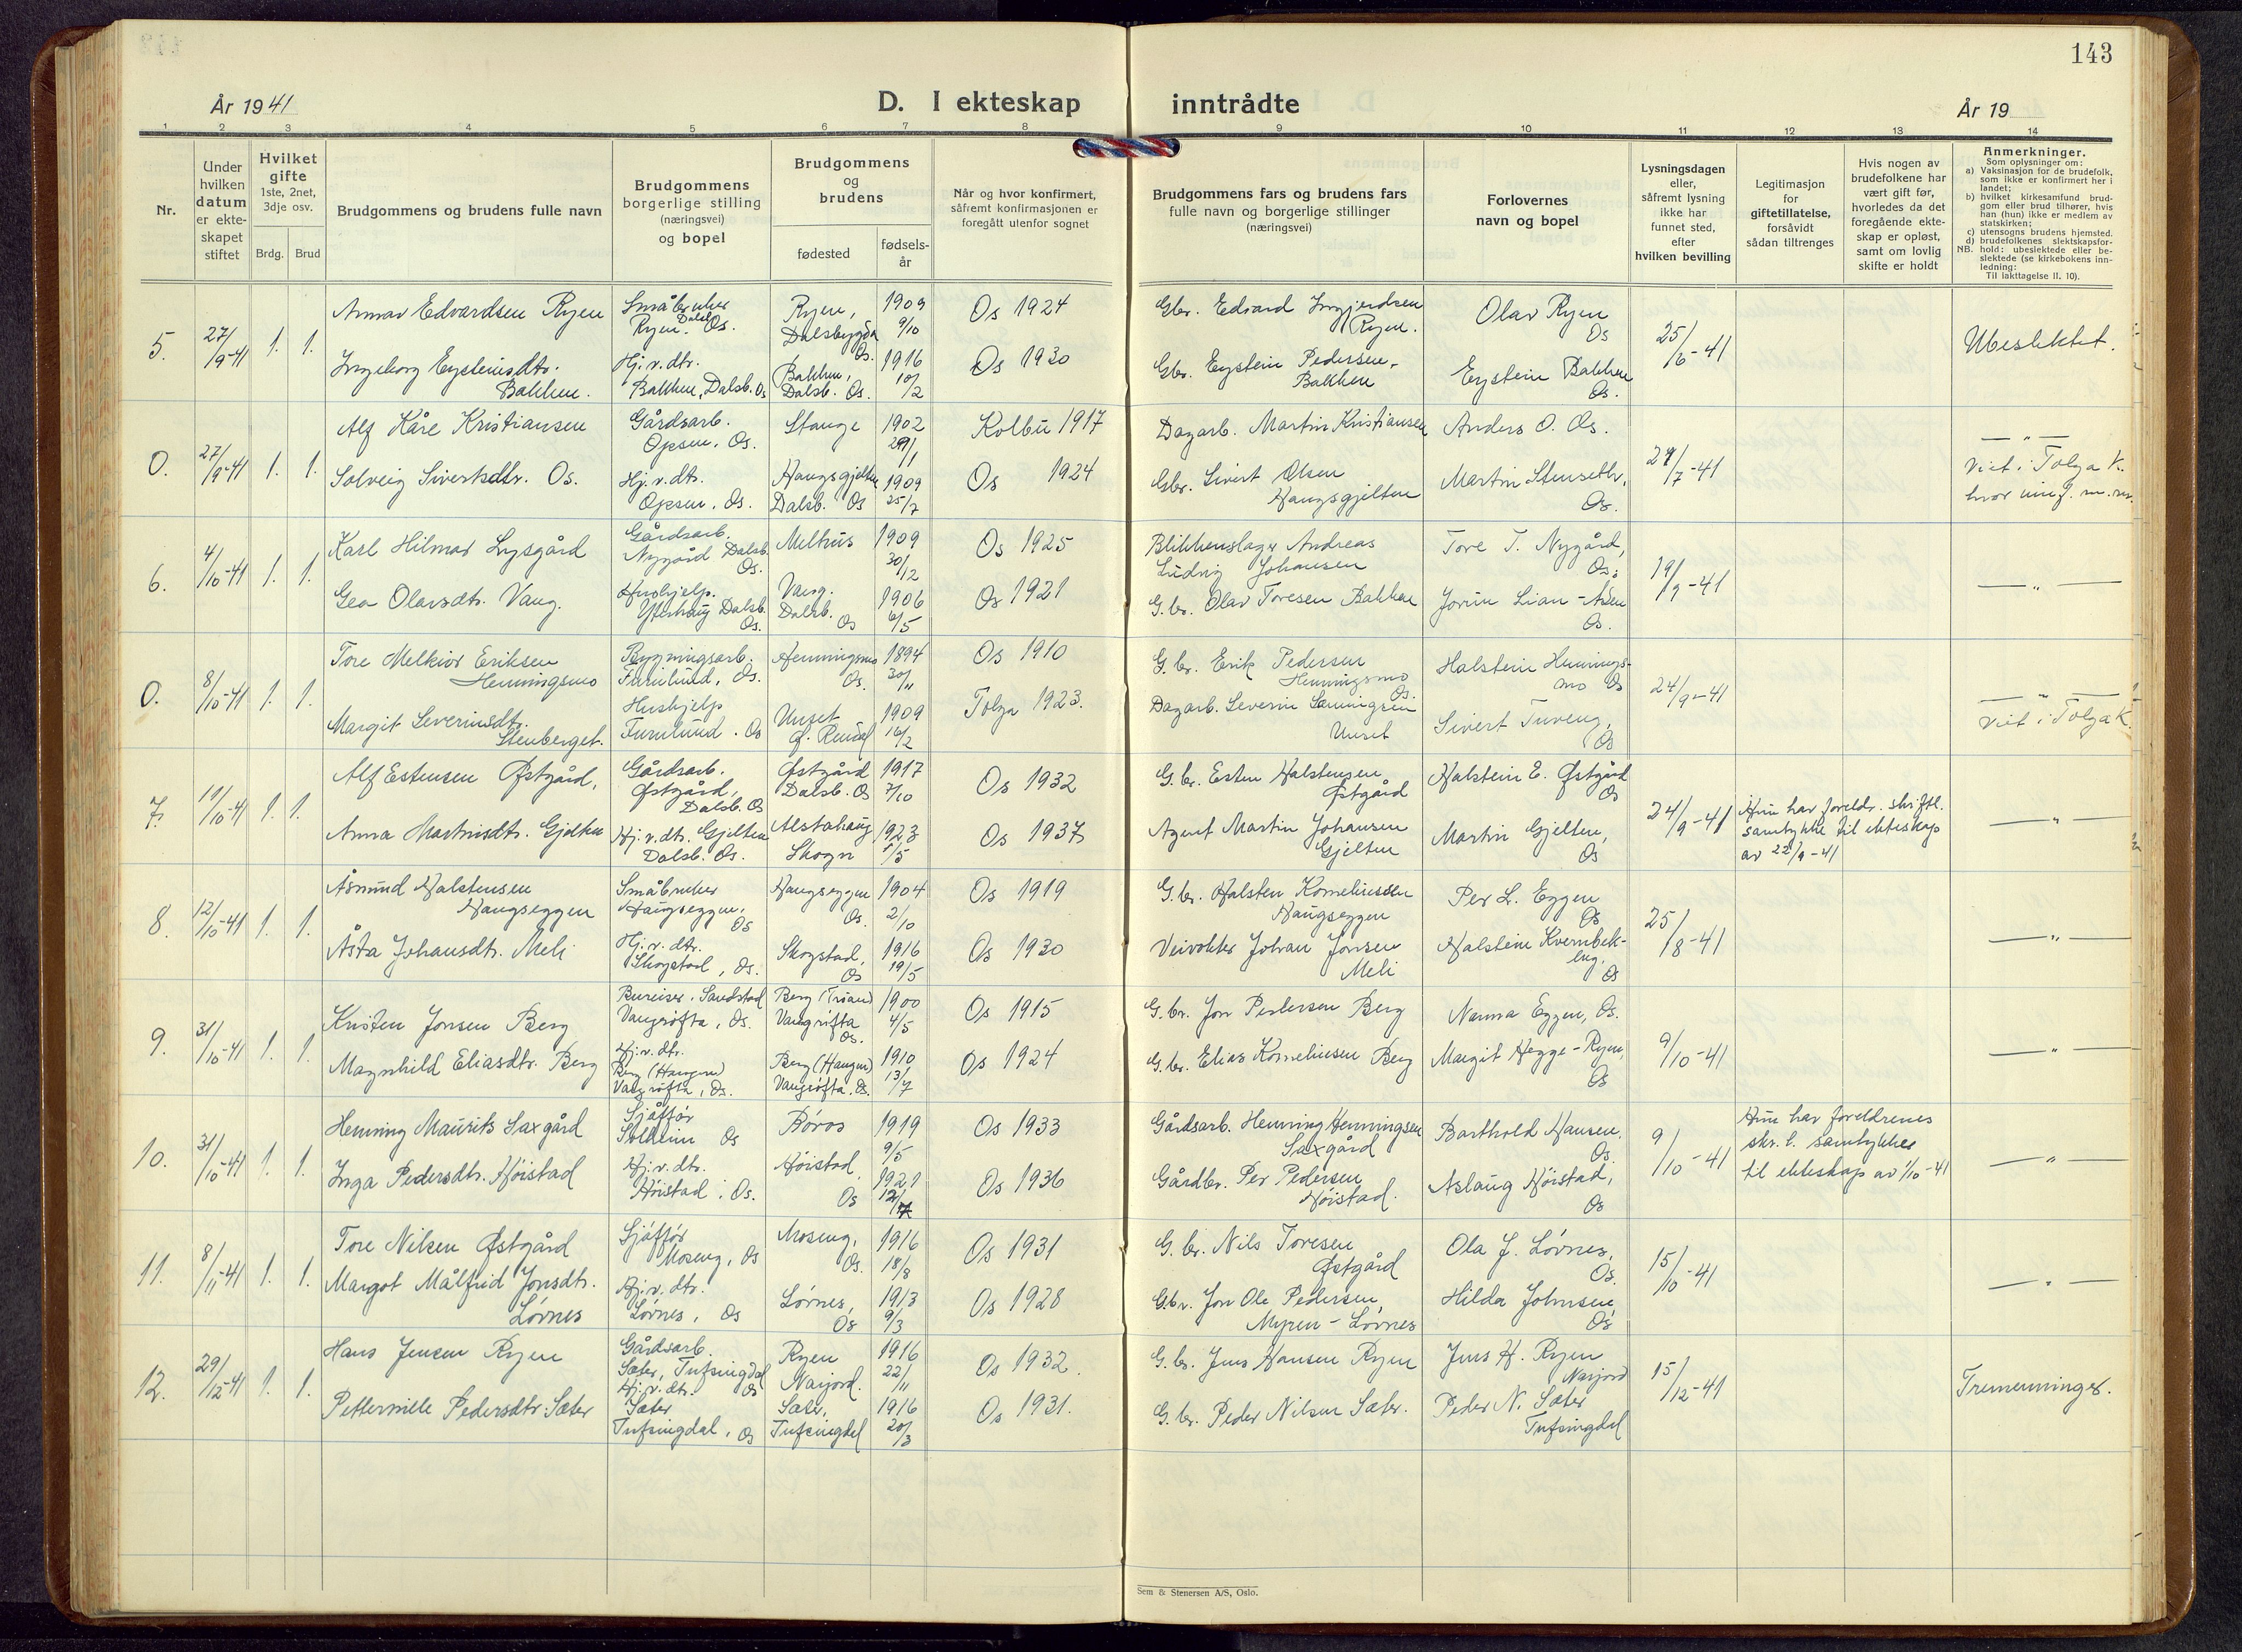 143
År 1941
D. I ekteskap inntrådte
År 19
1 2 3 4 5 6 7 8 9 10 11 12 13 14
Nr.
Under
hvilken
datum
er ekte-
skapet
stiftet
Hvilket
gifte
1ste, 2net,
3dje osv.
Brdg. Brud
Brudgommens og brudens fulle navn
Brudgommens
borgerlige stilling
(næringsvei)
og bopel
Brudgommens
og
brudens
fødested
fødsels-
år
Når og hvor konfirmert,
såfremt konfirmasjonen er
foregått utenfor sognet
Brudgommens fars og brudens fars
fulle navn og borgerlige stillinger
(næringsvei)
Forlovernes
navn og bopel
Lysningsdagen
eller,
såfremt lysning
ikke har
funnet sted,
efter
hvilken bevilling
Legitimasjon
for
giftetillatelse,
forsåvidt
sådan tiltrenges
Hvis nogen av
brudefolkene har
vært gift før,
hvorledes da det
foregående ekte-
skap er opløst,
samt om lovlig
skifte er holdt
Anmerkninger.
Som oplysninger om:
a) Vaksinasjon for de brudefolk,
som ikke er konfirmert her i
landet;
b) hvilket kirkesamfund brud-
gom eller brud tilhører, hvis
han (hun) ikke er medlem av
statskirken;
c) utensogns brudens hjemsted.
d) brudefolkenes slektskapsfor-
NB. hold: ubeslektede eller be-
slektede (se kirkebokens inn-
ledning:
Til iakttagelse II. 10).
5. 27/9-41 1. 1.
Edvardsen Ryen
Småbruker
Ryen, Dalsb. Os.
Ryen,
Dalsbygda
Os.
1909
9/10
Os 1924
Gbr. Edvard Ingjerdsen
Ryen.
Olav Ryen
Os
25/6-41
Ubeslektet.
Ingeborg Eysteinsdtr.
Bakken.
Hj.v.dtr.
Bakken, Dalsb. Os
Bakken,
Dalsb. Os.
1916
10/2
Os 1930
Gbr. Eystein Pedersen,
Bakken
Eystein Bakken
Os.
0. 27/9-41 1. 1.
Alf Kåre Kristiansen
Gårdsarb.
Opsen, Os.
Stange
1902
Kolbu 1917
Dagarb. Martin Kristiansen
Anders O. Os.
/7-41
— " —
Viet i Tolga K.
Solveig Sivertsdtr. Os.
Hj.v.dtr.
Opsen, Os.
Haugsgjelten
Dalsb. Os
1909
25/7
Os 1924
Gbr. Sivert Olsen
Haugsgjelten
Martin Stenseth,
Os.
6. 4/10-41 1. 1.
Karl Hilmar Lysgård
Gårdsarb.
Nygård Dalsb.
Os.
Melhus
1909
30/12
Os 1925
Blikkenslager Andreas
Ludvig Johansen
Tore T. Nygård,
Os.
19/9-41
— " —
Gea Olavsdtr. Vang.
Hushjelp.
Dalsb.
Os.
Vang.
Dalsb.
Os
1906
6/5
Os 1921
G.br. Olav Toresen Bakken
Jorun Lian-Åsen
Os.
0. 8/10-41 1. 1.
Tore Melkior Eriksen
Henningsmo
Bygningsarb.
Furulund, Os.
Henningsmo
Os.
1894
30/11
Os 1910
G.br. Erik Pedersen
Henningsmo
Os.
Halstein Hennings-
mo Os
24/9-41
— " —
Viet i Tolga K.
Margit Severinsdtr.
Stenberget.
Hushjelp
Furulund. Os
Unset
Ø. Rendal
1909
16/2
Tolga 1923.
Dagarb. Severin
Unset
Sivert Tuveng,
Os
7. 11/10-41 1. 1.
Alf Estensen Østgård,
Gårdsarb.
Østgård,
Dalsb. Os
Østgård
Dalsb. Os
1917
7/10
Os 1932
G.br. Esten Halstensen
Østgård
Halstein E. Østgård
Os
24/9-41
Hun har foreldr. skriftl.
samtykke til ekteskap
av 22/9-41
— " —
Anna Martinsdtr. Gjelten
Hj.v.dtr. Gjelten
Dalsb. Os.
Alstahaug
Skogn
1923
1/5
Os 1937
Agent Martin Johansen
Gjelten
Martin Gjelten,
Os
8. 12/10-41 1. 1.
Åsmund Halstensen
Haugseggen
Småbruker
Haugseggen,
Os
Haugseggen
Os.
1904
2/10
Os 1919
G.br. Halsten Korneliussen
Haugseggen
Per L. Eggen
Os
25/8-41
— " —
Åsta Johansdtr. Meli
Hj.v.dtr.
Skogstad, Os.
Skogstad,
Os
1916
19/5
Os 1930
Veivokter Johan Jonsen
Meli
Halstein Kvernbek-
eng.
Os
9. 31/10-41 1. 1.
Kristen Jonsen Berg
Bureiser. Sandstad
Vangrøfta, Os.
Berg (Trøan)
Vangrøfta
Os.
1900
4/5
Os 1915
G.br. Jon Pedersen Berg
Nanna Eggen, Os.
9/10-41
— " —
Magnhild Eliasdtr. Berg
Hj.v.dtr.
Berg (Haugen)
Vangrøfta, Os.
Berg (Haugen)
Vangrøfta. Os.
1910
13/7
Os 1924
G.br. Elias Korneliusen Berg
Margit Hegge-Ryen,
Os
10. 31/10-41 1. 1.
Henning Maurits Saxgård
Sjåfför
Solheim Os
Røros
1919
9/5
Os 1933
Gårdsarb. Henning Henningsen
Saxgård
Barthold Hansen.
Os.
9/10-41
Hun har foreldrenes
skr.l. samtykke
til ekteskap av 1/10-41
— " —
Inga Pedersdtr. Høistad
Hj.v.dtr.
Høistad, Os.
Høistad,
Os
1921
Os 1936
Gårdbr. Per Pedersen
Høistad.
Aslaug Høistad,
Os
11. 8/11-41 1. 1.
Tore Nilsen Østgård
Sjåfför
Moseng, Os
Moseng,
Os.
1916
18/8
Os 1931
G.br. Nils Toresen
Østgård
Ola J. Lövnes,
Os.
15/10-41
— " —
Margot Målfrid Jonsdtr.
Lövnes
Hj.v.dtr.
Lövnes, Os
Lövnes,
Os
1913
9/3
Os 1928
G.br. Jon Ole Pedersen,
Myren-Lövnes
Hilda Johnsen,
Os
12. 29/12-41 1. 1.
Hans Jensen Ryen
Gårdsarb.
Sæter, Tufsingdal
Os
Ryen
Narjord.
1916
22/11
Os 1932.
G.br. Jens Hansen Ryen
Jens H. Ryen
Narjord
15/12-41
Tremenninger.
Petternille Pedersdtr. Sæter
Hj.v.dtr.
Sæter
Tufsingdal, Os
Sæter,
Tufsingdal
1916
20/3
Os 1931.
G.br. Peder Nilsen Sæter.
Peder N. Sæter
Tufsingdal
Sem & Stenersen A/S, Oslo.